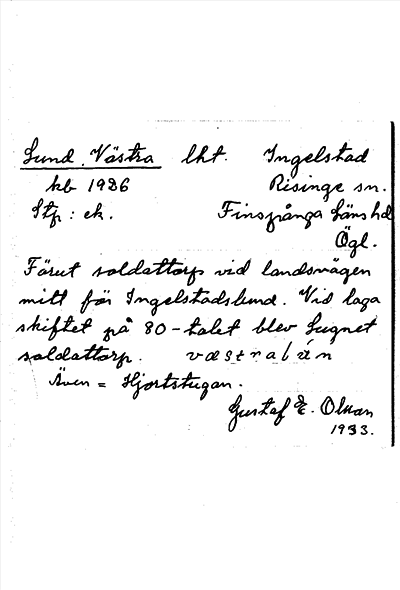 Lund, Västra lht. Ingelstad
kb 1926 Risinge sn.
Stp: ek. Finspånga läns hd
Ögl.
Förut soldattorp vid landsvägen
mitt för Ingelstadslund. Vid laga
skiftet på 80-talet blev Lugnet
soldattorp.
Även = Hjortstugan.
Gustaf E. Olsson
1933.